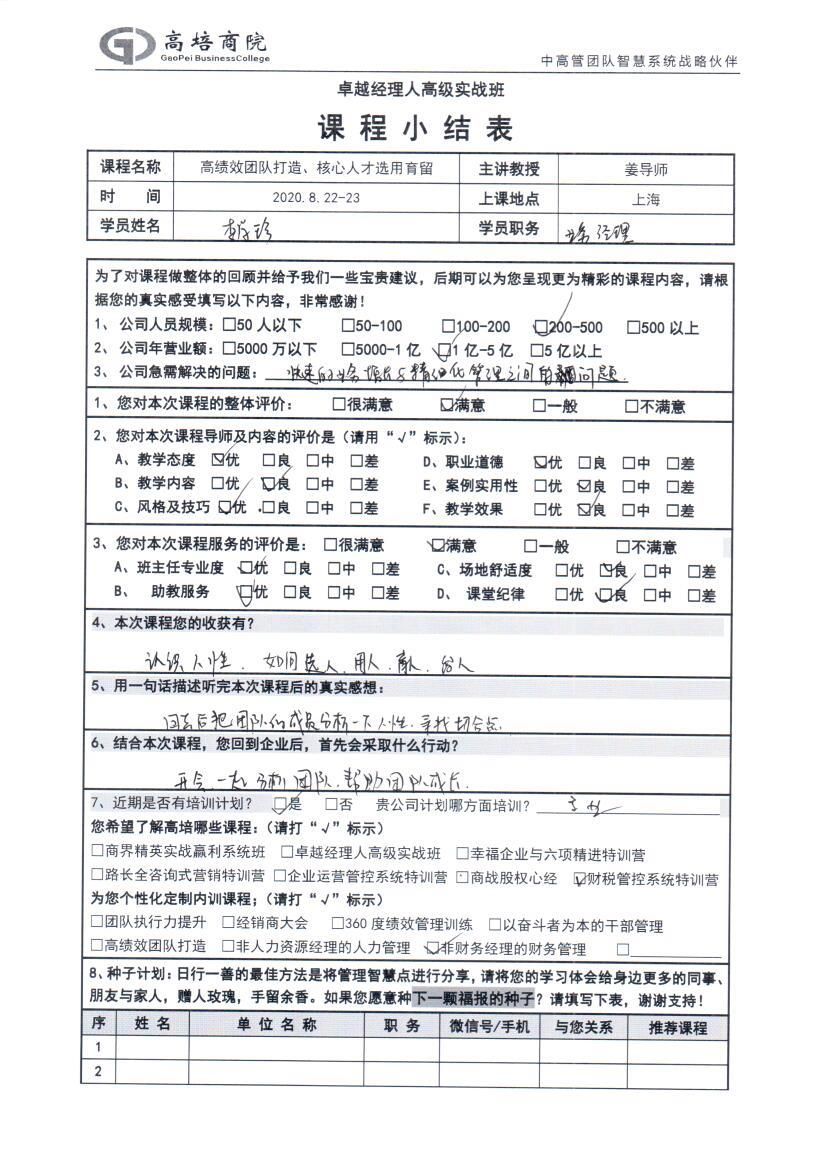 高培商院
GaoPei BusinessCollege
中高管团队智慧系统战略伙伴
卓越经理人高级实战班
课程小结表
课程名称 高绩效团队打造、核心人才选用育留 主讲教授 姜导师
时 间 2020.8.22-23 上课地点 上海
学员姓名 学员职务 经理
为了对课程做整体的回顾并给予我们一些宝贵建议，后期可以为您呈现更为精彩的课程内容，请根
据您的真实感受填写以下内容，非常感谢！
1、 公司人员规模：□50 人以下 □50-100 □100-200 ☑200-500 □500 以上
2、 公司年营业额：□5000 万以下 □5000-1 亿 ☑1 亿-5 亿 □5 亿以上
3、 公司急需解决的问题： 快速的业务增长与精细化管理之间的问题.
1、您对本次课程的整体评价： □很满意 ☑满意 □一般 □不满意
2、您对本次课程导师及内容的评价是（请用“√”标示）：
A、教学态度 ☑优 □良 □中 □差 D、职业道德 ☑优 □良 □中 □差
B、教学内容 □优 ☑良 □中 □差 E、案例实用性 □优 ☑良 □中 □差
C、风格及技巧 ☑优 □良 □中 □差 F、教学效果 □优 ☑良 □中 □差
3、您对本次课程服务的评价是： □很满意 ☑满意 □一般 □不满意
A、班主任专业度 ☑优 □良 □中 □差 C、场地舒适度 □优 ☑良 □中 □差
B、 助教服务 ☑优 □良 □中 □差 D、 课堂纪律 □优 ☑良 □中 □差
4、本次课程您的收获有？
认识人性、如何选人、用人、育人、留人
5、用一句话描述听完本次课程后的真实感想：
回去后把团队的成员分析一下人性.寻找切合点.
6、结合本次课程，您回到企业后，首先会采取什么行动？
开会.一起分析团队.帮助团队成长.
7、近期是否有培训计划？ ☑是 □否 贵公司计划哪方面培训？
您希望了解高培哪些课程：（请打“√”标示）
□商界精英实战赢利系统班 □卓越经理人高级实战班 □幸福企业与六项精进特训营
□路长全咨询式营销特训营 □企业运营管控系统特训营 □商战股权心经 ☑财税管控系统特训营
为您个性化定制内训课程；（请打“√”标示）
□团队执行力提升 □经销商大会 □360 度绩效管理训练 □以奋斗者为本的干部管理
□高绩效团队打造 □非人力资源经理的人力管理 ☑非财务经理的财务管理 □
8、种子计划：日行一善的最佳方法是将管理智慧点进行分享，请将您的学习体会给身边更多的同事、
朋友与家人，赠人玫瑰，手留余香。如果您愿意种下一颗福报的种子？请填写下表，谢谢支持！
序 姓 名 单 位 名 称 职 务 微信号/手机 与您关系 推荐课程
1
2